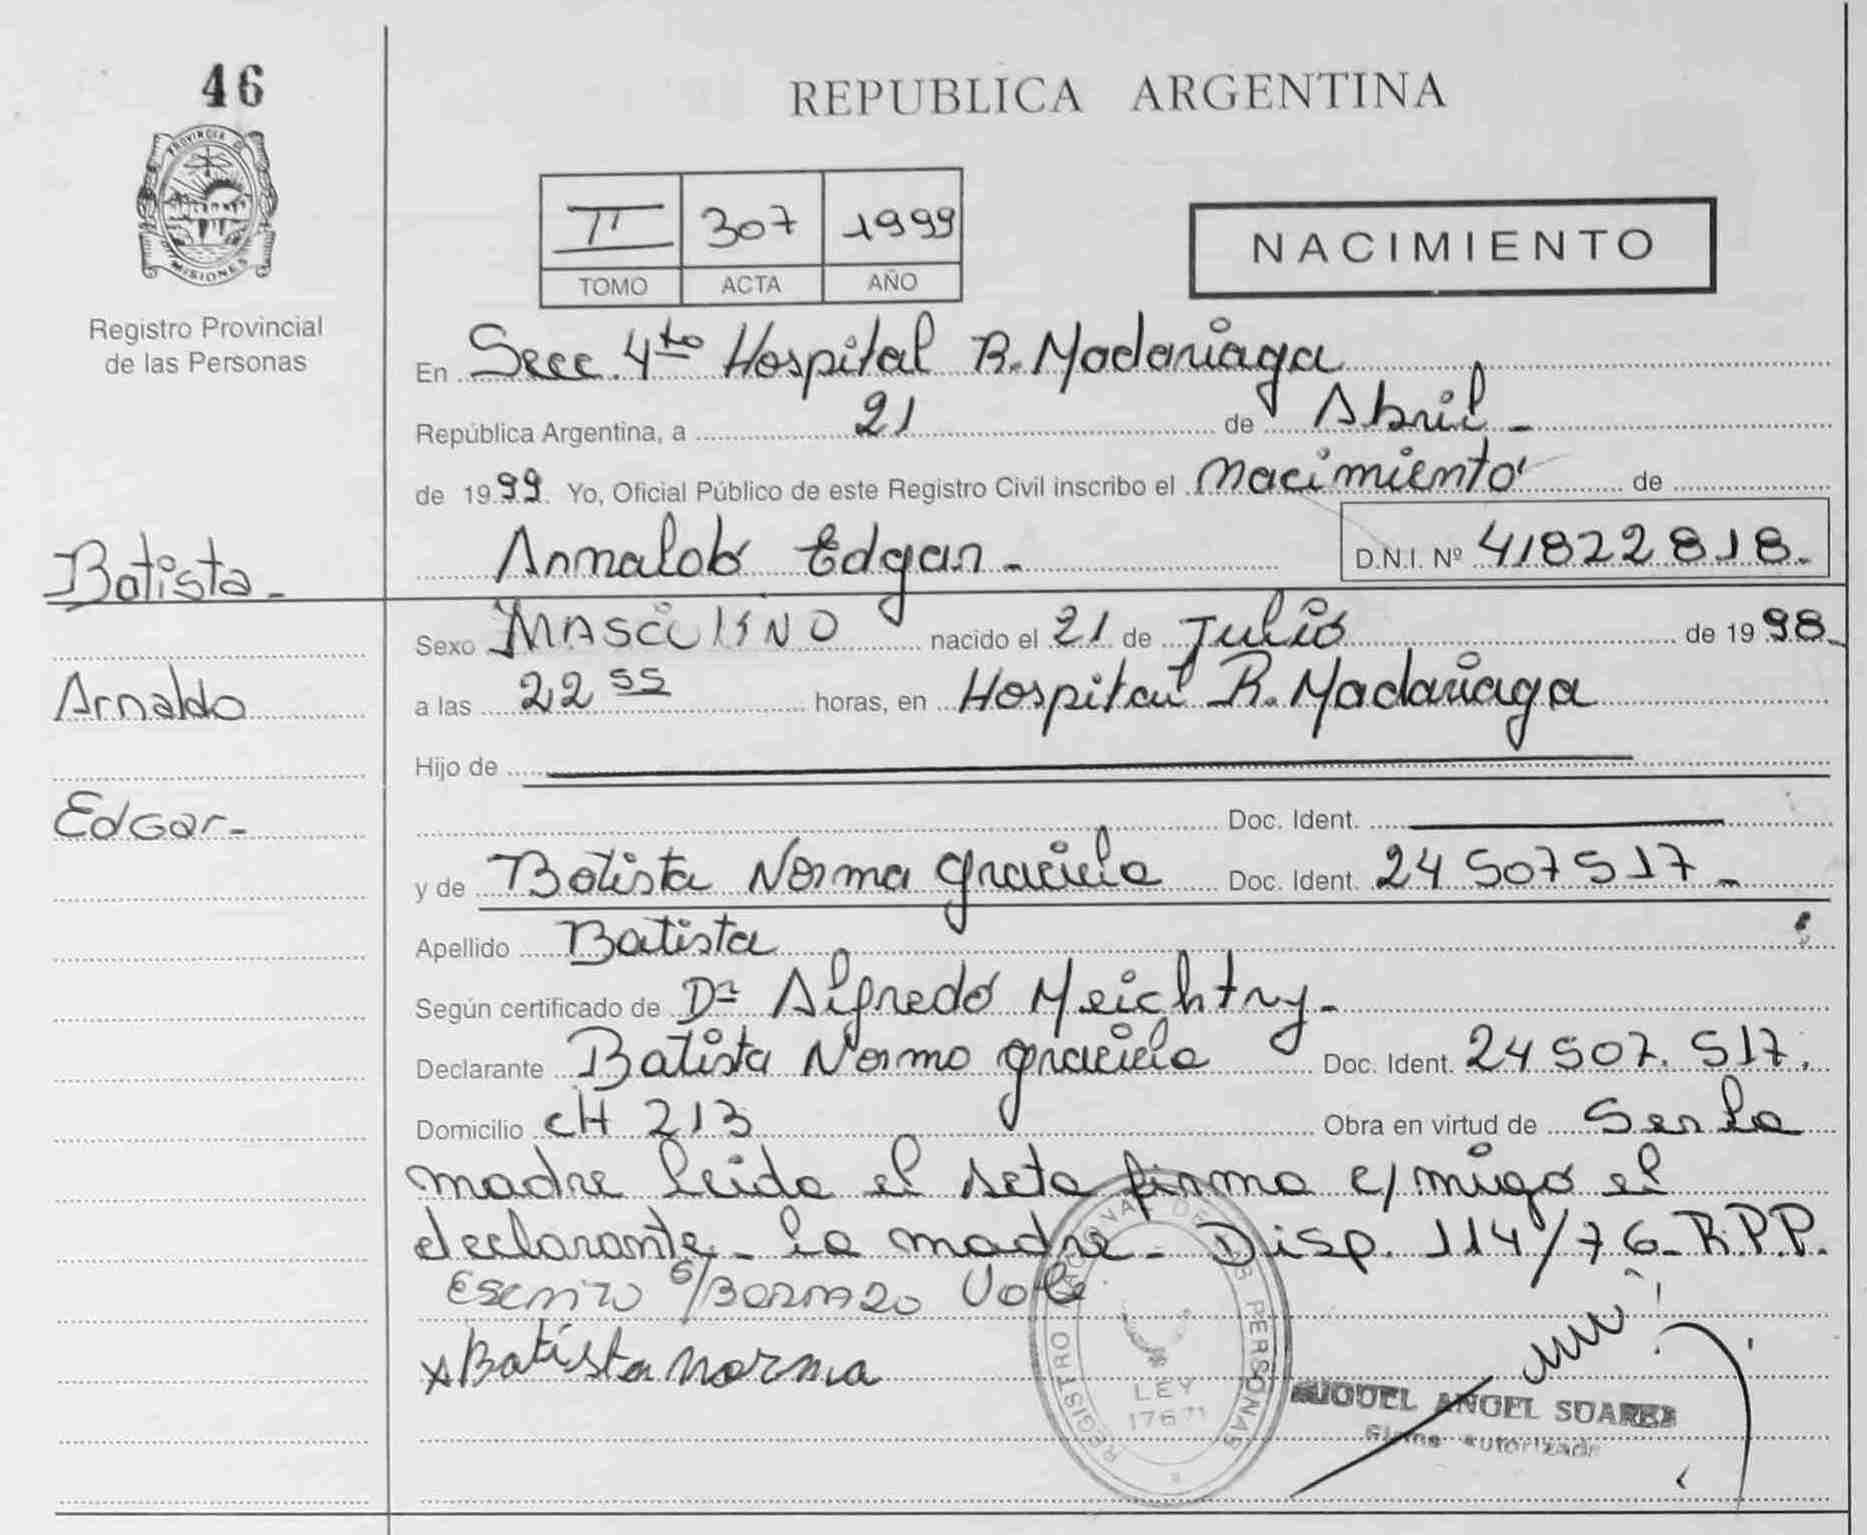 46
PROVINCIA DE
MISIONES
Registro Provincial
de las Personas
Batista.-
Arnaldo
Edgar-
REPUBLICA ARGENTINA
II 307 1999
TOMO ACTA AÑO
NACIMIENTO
En Secc. 4to Hospital R. Madariaga
República Argentina, a 21 de Abril -
de 1999. Yo, Oficial Público de este Registro Civil inscribo el Nacimiento de
Arnaldo Edgar - D.N.I. Nº 41822818.
Sexo MASCULINO nacido el 21 de Julio de 1998-
a las 22 55 horas, en Hospital R. Madariaga
Hijo de
Doc. Ident.
y de Batista Norma Graciela Doc. Ident. 24 507 517 -
Apellido Batista
Según certificado de Dr Alfredo Meichtry -
Declarante Batista Norma Graciela Doc. Ident. 24 507. 517.
Domicilio CH 213 Obra en virtud de Ser la
madre leida el Acta firma c/migo el
declarante - la madre - Disp. 114/76 - R.P.P.
Escrito s/Borrado Vale
x Batista norma
REGISTRO NACIONAL DE LAS PERSONAS
LEY
17671
MIGUEL ANGEL SUAREZ
Firma Autorizada